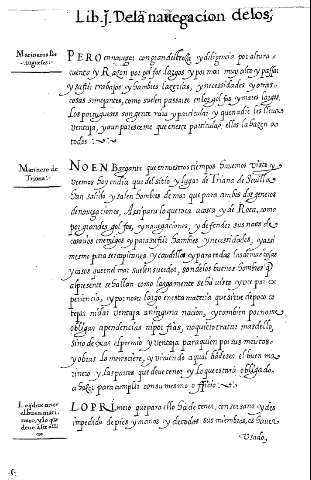 Lib. J. De la nauegacion de los,
Marineros Por
tugueses.
PERO en nauegar con gran destreza y diligencia por altura o
cuenta y Razon por golfos largos y por mar muy alto y passar
y sufrir trabajos y hambres largas, y necesidades y otras
cosas semejantes, como suelen passarse en los golfos y mares largos,
Los portugueses son gente rara y particular y que nadie les lleua
Ventaja, y aun paresceme que en este particular, ellos la hazen a
todos
Marinero de
Triana
NO EN Bargante que en nuestros tiempos hauemos visto y
veemos hoy en dia que del sitio y lugar de Triana de Seuilla
han salido y salen hombres de mar que para ambos dos generos
de nauegaciones, Assi para lo que toca a costa y de Roca, como
por grandes golfos, y nauegaciones, y defender sus naos de
cosarios enemigos y para sufrir hambres y necessidades, y assi
mesmo para ser capitanes y caudillos y para todas las demas cosas
y casos que en el mar suelen suceder, son de los buenos hombres q̃
al presente se hallan como largamente se ha visto y vee por ex
periencia, y por no ser largo en esta materia que sirue de poco co
tejar ni dar ventaja a ninguna nacion, y tambien por no nos
obligar a pendencias ni porfias, no quiero tratar mas dello,
sino dexar el premio y ventaja para quien por sus meritos
y obras lo meresciere, y viniendo a qual ha de ser el buen ma
rinero y las partes que deue tener y Lo que estara obligado
a hazer para cumplir con su mesmo officio
el buen mari
nero, y lo que
LO PRImero que para ello ha de tener, con ser sano y des
impedido de pies y manos y de todos sus miembros, es hauer
Vsado,